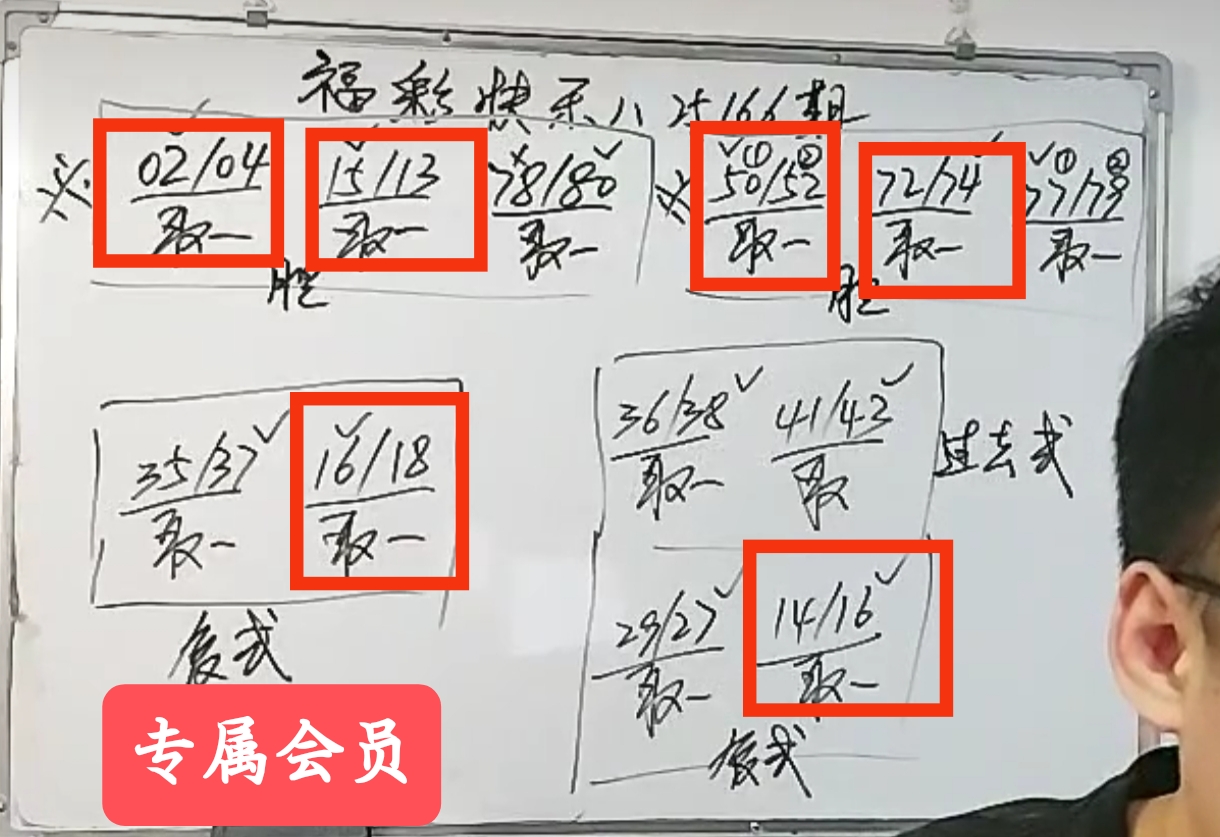 福彩快乐八25166期
※ 02/04 15/13 78/80 ※ 50/52 72/74 77/79
取一 取一 取一 取一 取一 取一
胆 胆
36/38 41/43
取一 取 过去式
35/37 16/18
取一 取一
复式
29/27 14/16
取一 取一
复式
专属会员